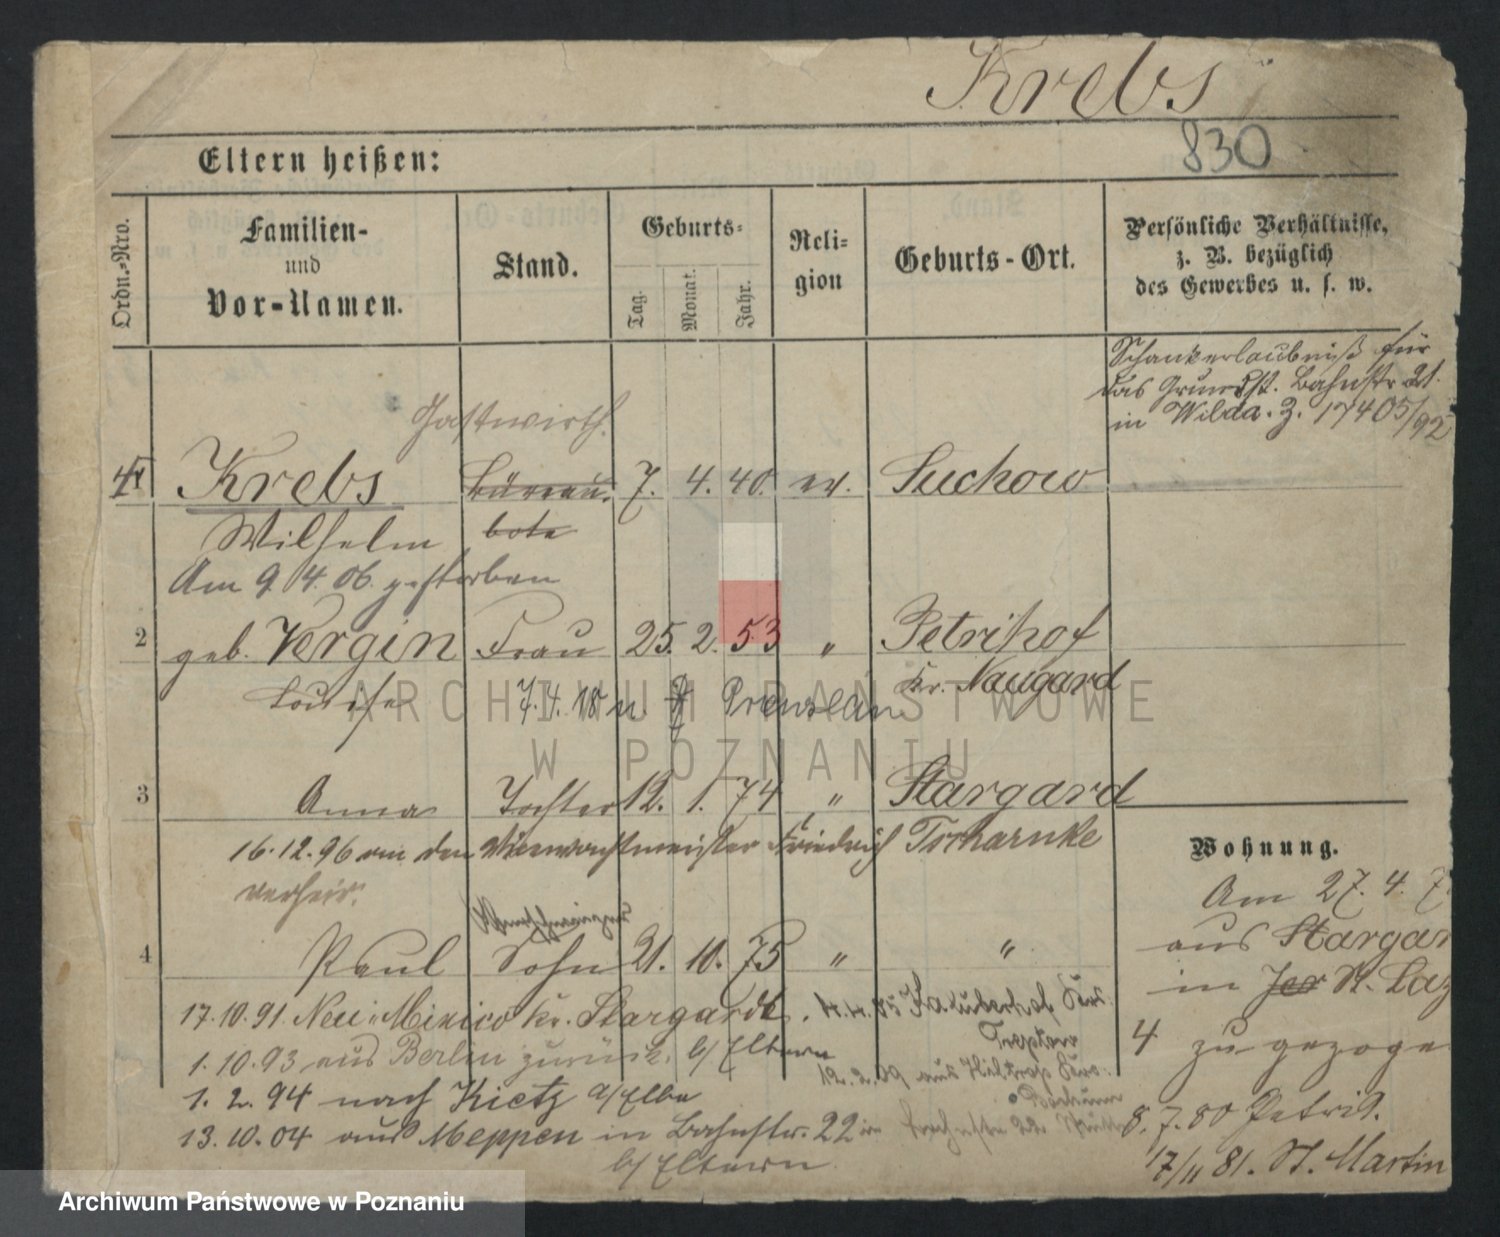 Krebs
830
Eltern heißen:
Ordn.-Nro.
Familien-
und
Vor-Namen.
Stand.
Geburts-
Tag.
Monat.
Jahr.
Reli-
gion
Geburts-Ort.
Persönliche Verhältnisse,
z. B. bezüglich
des Gewerbes u. s. w.
Schankerlaubniß für
das Grundst. Bahnstr. 21.
in Wilda. Z. 17405/92
Gastwirth.
1 Krebs Büreau- 7. 4. 40. ev. Suchow
Wilhelm bote
Am 9. 4. 06. gestorben
2 geb. Vergin Frau 25. 2. 53 " Petrihof
Louise Kr. Naugard
7.4.18 n. Prenzlau
3 Anna Tochter 12. 1. 74 " Stargard
16.12.96 an den Friedrich
verheir.
4 Paul Sohn 21. 10. 75 " "
17.10.91. Neu Mexico Kr. Stargard
1.10.93 aus Berlin zurück. b/ Eltern
1. 2. 94 nach Kietz a/Elbe
13.10.04 aus Meppen in Bahnstr. 22
b/ Eltern
Wohnung.
Am 27. 4. 7
aus Stargar
in Jer St. Laz
4 zu gezoge
8.7.80 Petrist.
17/11 81. St. Martin
ARCHIWUM PAŃSTWOWE
W POZNANIU
Archiwum Państwowe w Poznaniu